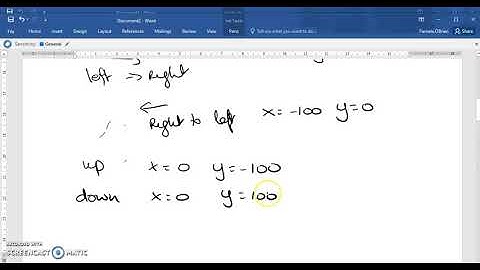 Document2 - Word
File
Home
Insert
Design
Layout
References
Mailings
Review
View
Pens
Tell me what you want to do
Pamela O'Brien
Share
General
left ⇒ Right
← Right to left x=-100 y=0
up x=0 y=-100
down x=0 y=100
RECORDED WITH
SCREENCAST MATIC